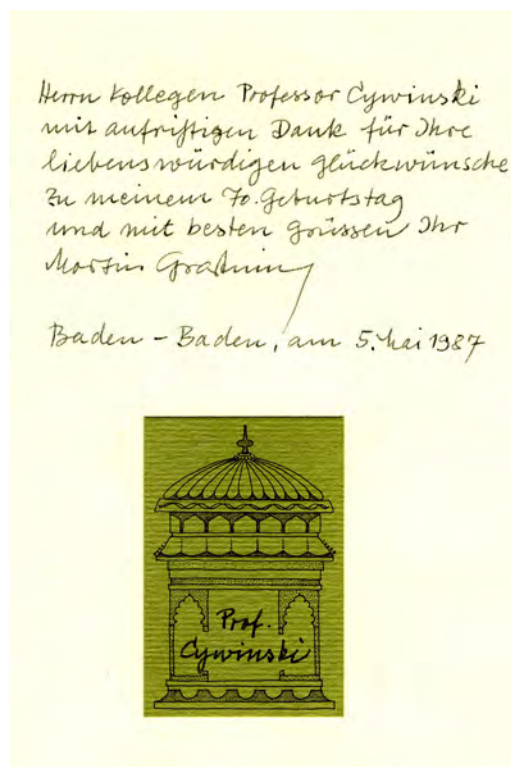 Herrn Kollegen Professor Cywinski
mit aufrichtigen Dank für Ihre
liebenswürdigen Glückwünsche
zu meinem 70. Geburtstag
und mit besten Grüssen Ihr
Martin
Baden - Baden, am 5. Mai 1987
Prof.
Cywinski